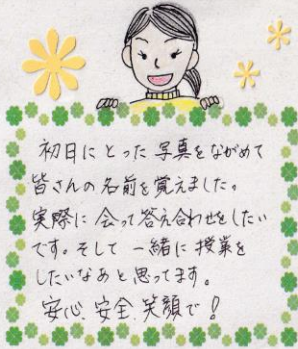 初日にとった写真をながめて
皆さんの名前を覚えました。
実際に会って答え合わせをしたい
です。そして一緒に授業を
したいなあと思ってます。
安心、安全、笑顔で!